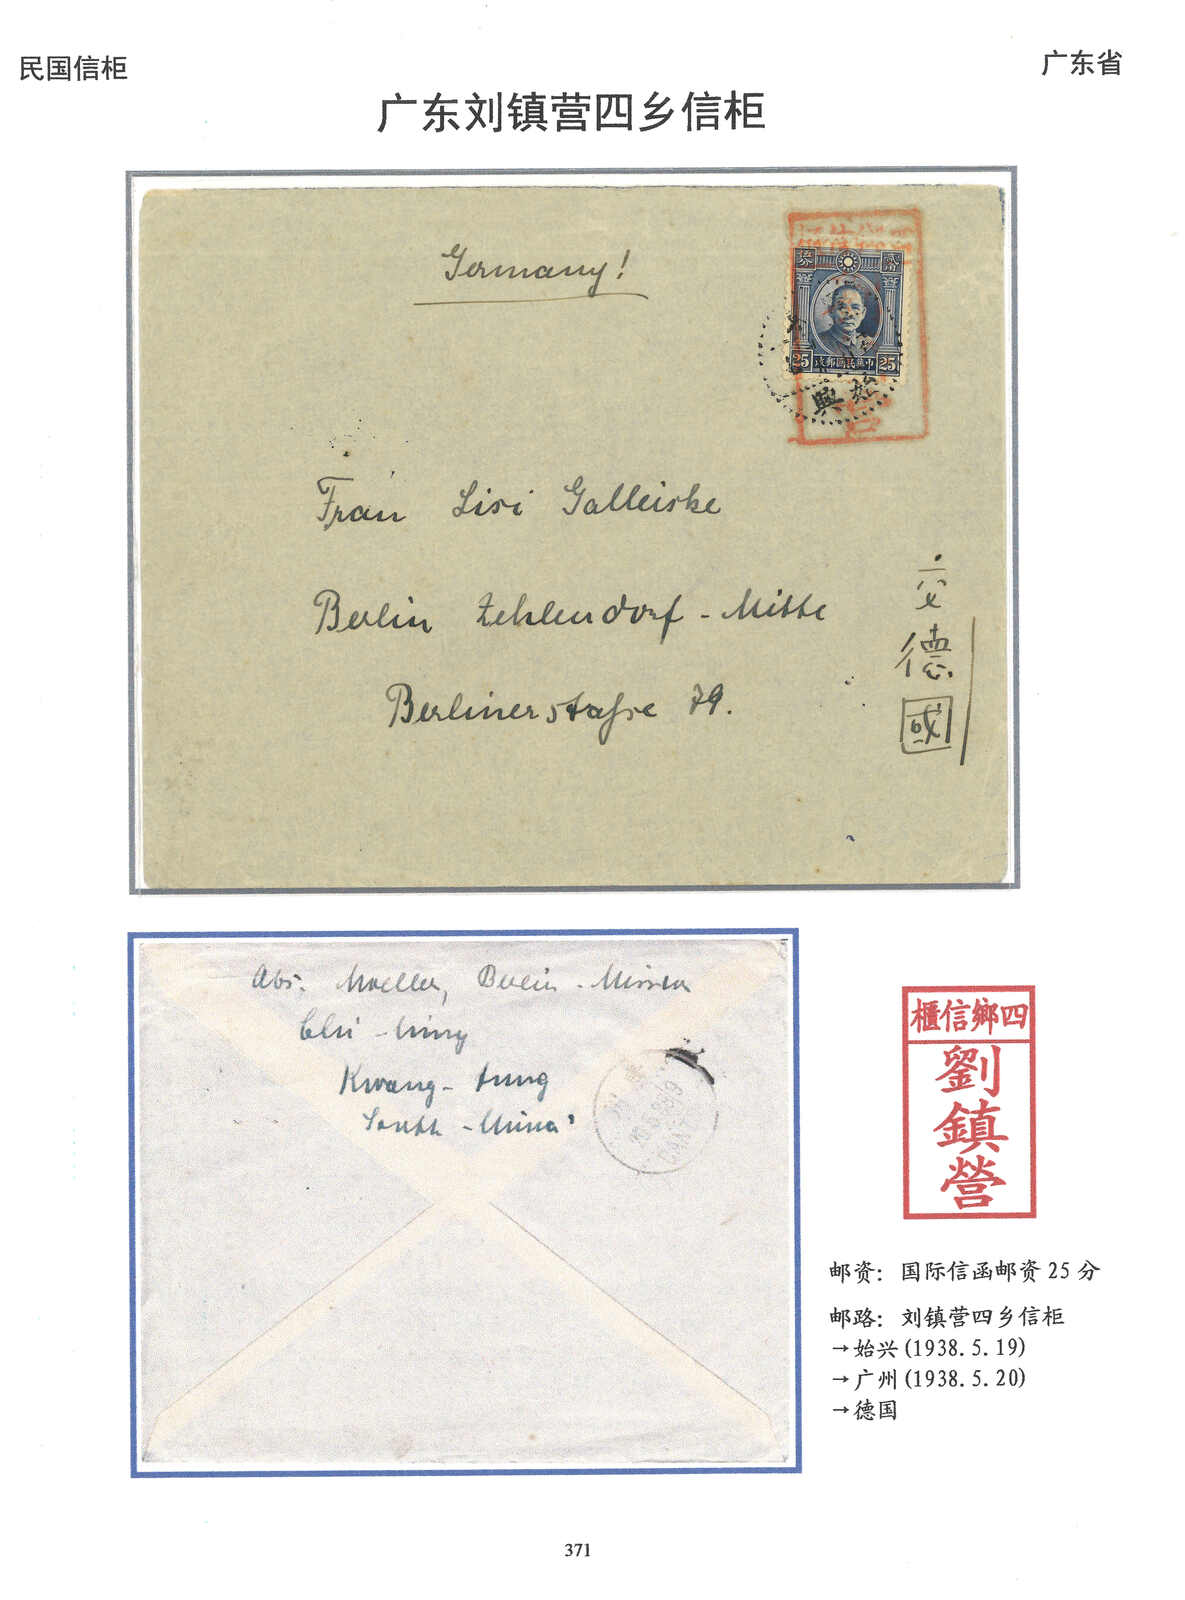 民国信柜
广东省
广东刘镇营四乡信柜
Germany!
25
中華民國郵政
25
始
興
Frau Lisi Galleiske
Berlin Zehlendorf - Mitte
Berlinerstraße 79.
交
德
國
Abs. Moeller, Berlin - Mission
Chi - hing
Kwang - tung
South - China
櫃信鄉四
劉
鎮
營
邮资：国际信函邮资 25 分
邮路：刘镇营四乡信柜
→始兴(1938.5.19)
→广州(1938.5.20)
→德国
371